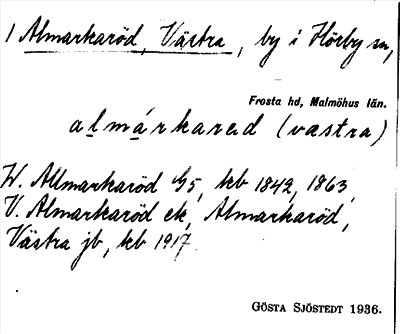 1 Almarkaröd, Västra, by i Hörby sn,
Frosta hd, Malmöhus län.
almárkarəd (vastra)
W. Allmarkaröd G5, kb 1842, 1863,
V. Almarkaröd ek, Almarkaröd,
Västra jb, kb 1917.
GÖSTA SJÖSTEDT 1936.